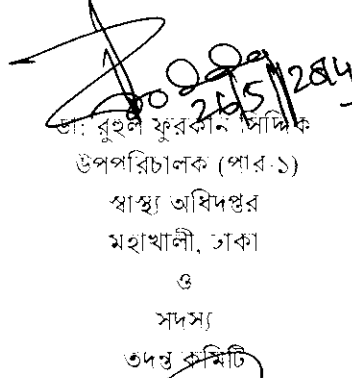 26/5/2014
ডা: রুহুল ফুরকান সিদ্দিক
উপপরিচালক (পার-১)
স্বাস্থ্য অধিদপ্তর
মহাখালী, ঢাকা
ও
সদস্য
তদন্ত কমিটি